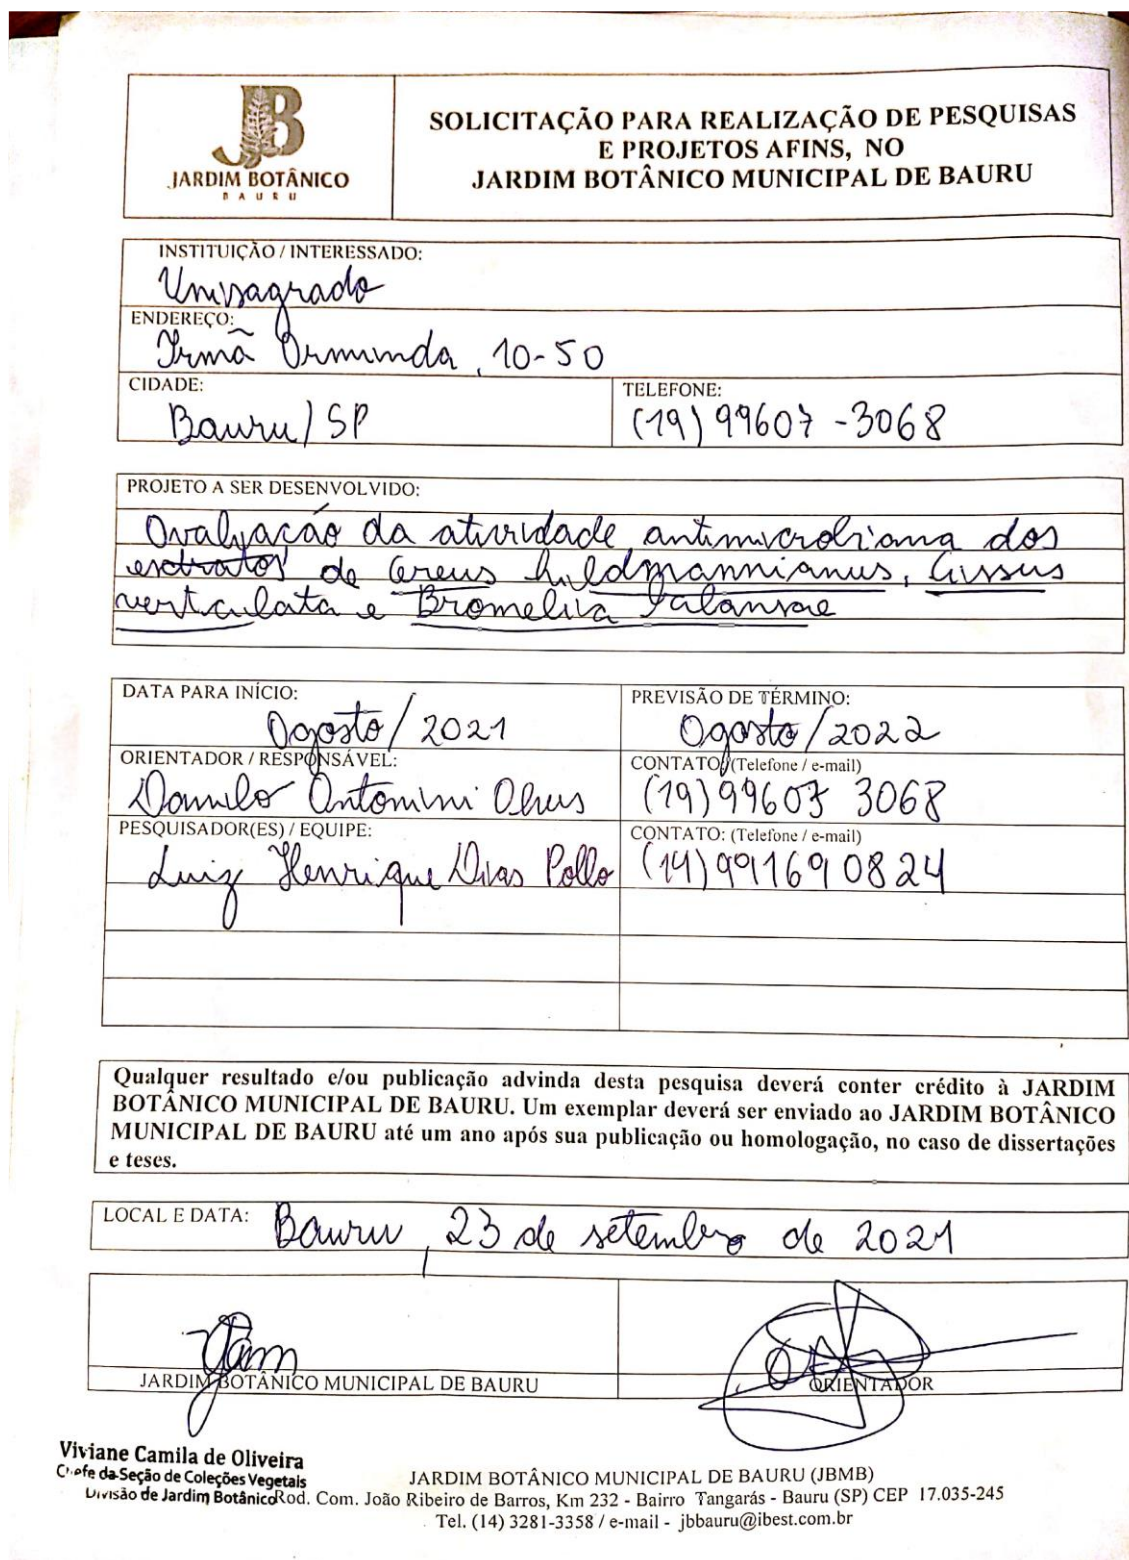 JB
JARDIM BOTÂNICO
BAURU
SOLICITAÇÃO PARA REALIZAÇÃO DE PESQUISAS
E PROJETOS AFINS, NO
JARDIM BOTÂNICO MUNICIPAL DE BAURU
INSTITUIÇÃO / INTERESSADO:
Unisagrado
ENDEREÇO:
Irmã Arminda, 10-50
CIDADE:
Bauru/SP
TELEFONE:
(19) 99607-3068
PROJETO A SER DESENVOLVIDO:
Avaliação da atividade antimicrobiana dos
extratos de Cereus hildmannianus, Cissus
verticulata e Bromelia balansae
DATA PARA INÍCIO:
Agosto/2021
PREVISÃO DE TÉRMINO:
Agosto/2022
ORIENTADOR / RESPONSÁVEL:
Danilo Antonini Alves
CONTATO: (Telefone / e-mail)
(19) 99607 3068
PESQUISADOR(ES) / EQUIPE:
Luiz Henrique Dias Pollo
CONTATO: (Telefone / e-mail)
(14) 991690824
Qualquer resultado e/ou publicação advinda desta pesquisa deverá conter crédito à JARDIM
BOTÂNICO MUNICIPAL DE BAURU. Um exemplar deverá ser enviado ao JARDIM BOTÂNICO
MUNICIPAL DE BAURU até um ano após sua publicação ou homologação, no caso de dissertações
e teses.
LOCAL E DATA: Bauru, 23 de setembro de 2021
JARDIM BOTÂNICO MUNICIPAL DE BAURU
ORIENTADOR
Viviane Camila de Oliveira
Chefe da Seção de Coleções Vegetais
Divisão de Jardim Botânico
JARDIM BOTÂNICO MUNICIPAL DE BAURU (JBMB)
Rod. Com. João Ribeiro de Barros, Km 232 - Bairro Tangarás - Bauru (SP) CEP 17.035-245
Tel. (14) 3281-3358 / e-mail - jbbauru@ibest.com.br